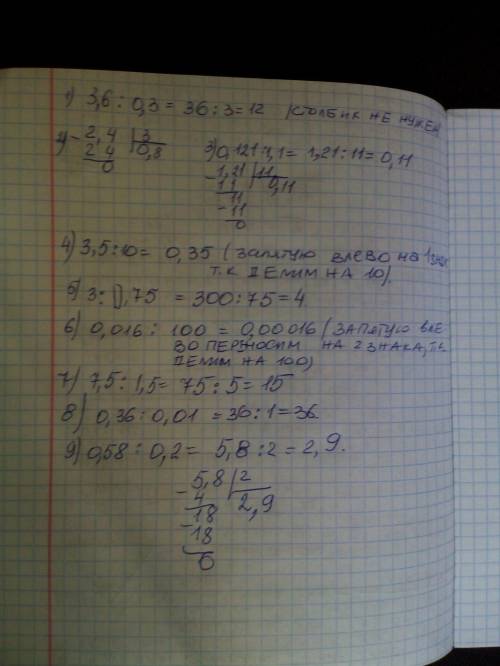 1) 3,6 : 0,3 = 36 : 3 = 12 (СТОЛБИК НЕ НУЖЕН
2) - 2,4 | 3
2 4 0,8
0
3) 0,121 : 1,1 = 1,21 : 11 = 0,11
- 1,21 | 11
11 0,11
11
- 11
0
4) 3,5 : 10 = 0,35 (ЗАПЯТУЮ ВЛЕВО НА 1 ЗНАК
Т.К ДЕЛИМ НА 10).
5) 3 : 0,75 = 300 : 75 = 4
6) 0,016 : 100 = 0,00016 (ЗАПЯТУЮ ВЛЕ-
ВО ПЕРЕНОСИМ НА 2 ЗНАКА, Т.К.
ДЕЛИМ НА 100)
7) 7,5 : 1,5 = 75 : 5 = 15
8) 0,36 : 0,01 = 36 : 1 = 36
9) 0,58 : 0,2 = 5,8 : 2 = 2,9.
- 5,8 | 2
4 2,9
18
- 18
0